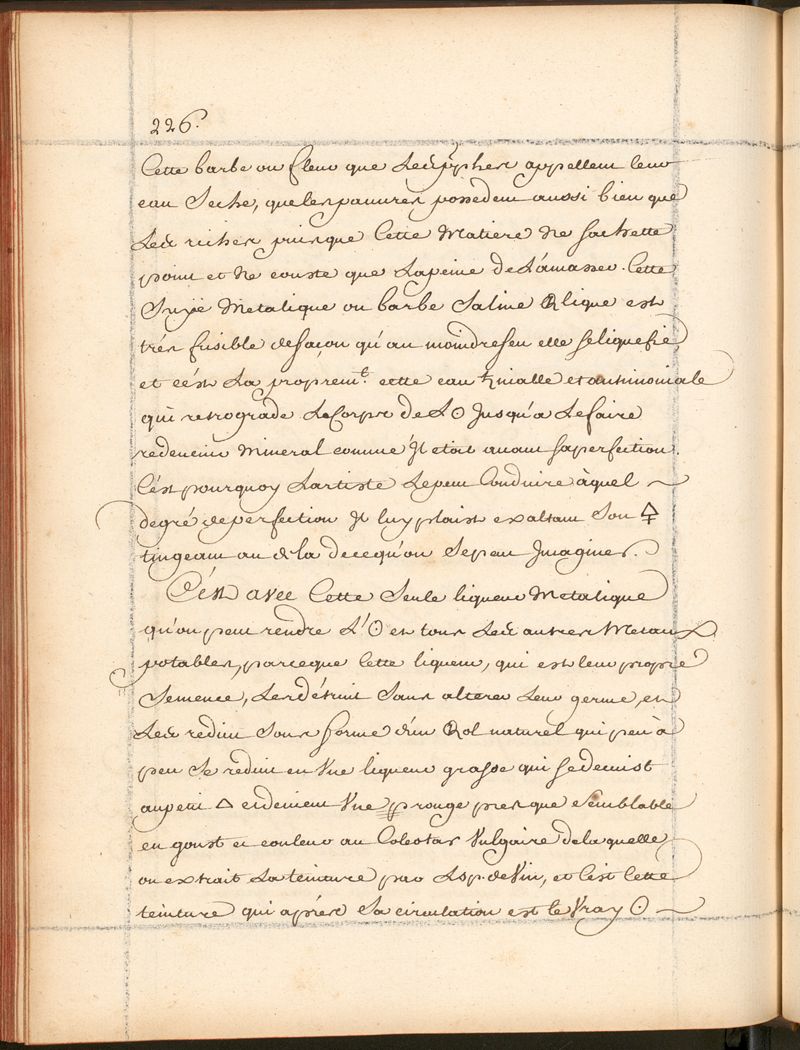 226.
Cette barbe ou fleur que Les φphes appellent leur
eau Seche, que les pauvres possedent aussi bien que
Les riches puisque Cette Matiere ne sachette
point et ne couste que La peine de L'amasser. Cette
Metalique ou barbe Saline est
trés fusible de façon qu'au moindre feu elle se liquefie,
et c'est La propremt. cette eau ♄nialle et antimoniale
qui retrograde Le Corps de L'☉ Jusqu'a Le faire
redevenir Mineral comme Il etoit avant sa perfection.
C'est pourquoy L'artiste Le peut Conduire à quel
degré de perfection Il luy plaist exaltant Son 🜍
tingeant au de la de ce qu'on Se peut Imaginer.
C'est avec Cette Seule liqueur Metalique
qu'on peut rendre L'☉ et tous Les autres Metaux
potables, parceque Cette liqueur, qui est leur propre
Semence, Les détruit Sans alterer Leur germe, et
Les reduit Sous forme d'un naturel qui peu à
peu Se reduit en Vne liqueur grasse qui se
au petit △ et devient Vne rouge presque Semblable
en goust et couleur au Colcotar Vulgaire de la quelle
on extrait La teinture par L'sp. de Vin, et C'est Cette
teinture qui aprés Sa circulation est le Vray ☉